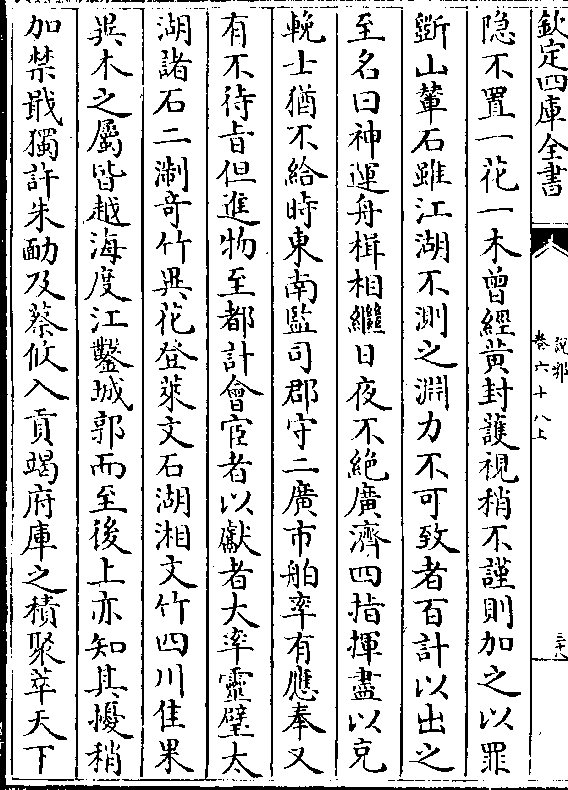 欽定四庫全書
説郛
卷六十八上
三十八
隐不置一花一木曾經黄封䕶視稍不謹則加之以罪
斵山輦石雖江湖不測之淵力不可致者百計以出之
至名曰神運舟楫相繼日夜不絶廣濟四指揮盡以充
輓士猶不給時東南監司郡守二廣市舶率有應奉又
有不待㫖但進物至都計會宦者以獻者大率靈璧太
湖諸石二淛竒竹異花登萊文石湖湘文竹四川佳果
異木之屬皆越海度江鑿城郭而至後上亦知其擾稍
加禁戢獨許朱勔及蔡攸入貢竭府庫之積聚萃天下